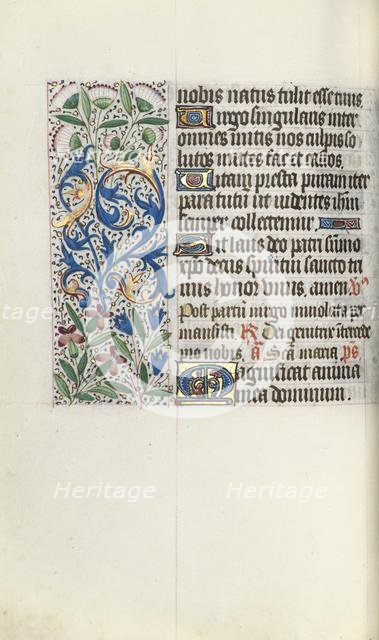 nobis natus tulit esse tuus.
Uirgo singularis inter
omnes mitis nos culpis so
lutos mites fac et castos.
Uitam presta puram iter
para tutum ut uidentes ihm
semper colletemur.
Sit laus deo patri sumo
xpo decus spiritui sancto tri
nus honor unus. amen. V
Post partum uirgo inuiolata per
mansisti. R Dei genitrix interce
pro nobis. a Sca maria. ps
Magnificat anima
mea dominum.
Heritage Heritage